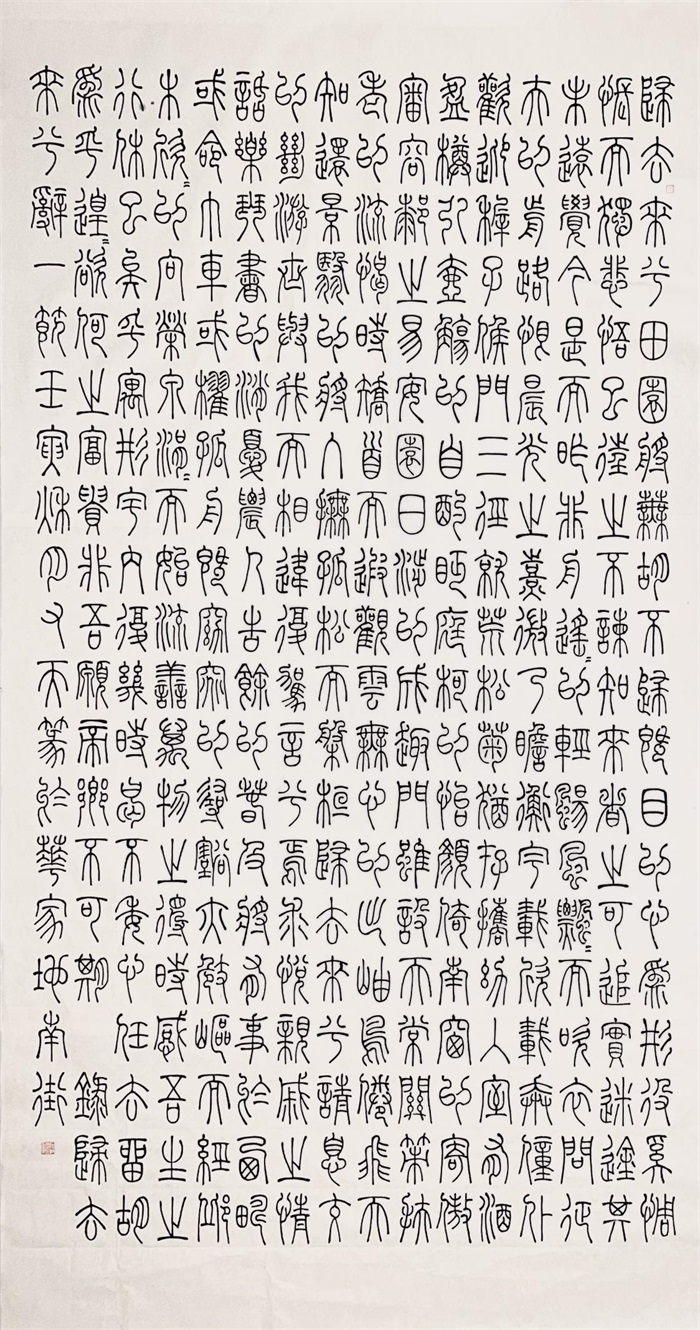 歸去來兮田園將蕪胡不歸既自以心爲形役奚惆
悵而獨悲悟已往之不諫知來者之可追實迷途其
未遠覺今是而昨非舟遙〻以輕颺風飄〻而吹衣問征
夫以前路恨晨光之熹微乃瞻衡宇載欣載奔僮仆
歡迎稚子候門三徑就荒松菊猶存攜幼入室有酒
盈樽引壺觴以自酌眄庭柯以怡顏倚南窗以寄傲
審容膝之易安園日涉以成趣門雖設而常關策扶
老以流憩時矯首而遐觀雲無心以出岫鳥倦飛而
知還景翳以將入撫孤松而盤桓歸去來兮請息交
以絕游世與我而相違復駕言兮焉求悅親戚之情
話樂琴書以消憂農人告餘以春及將有事於西疇
或命巾車或櫂孤舟既窈窕以尋壑亦崎嶇而經邱
木欣〻以向榮泉涓〻而始流善萬物之得時感吾生之
行休已矣乎寓形宇內復幾時曷不委心任去留胡
爲乎遑〻欲何之富貴非吾願帝鄉不可期 錄歸去
來兮辭一節壬寅秋月又天篆於華家地南街